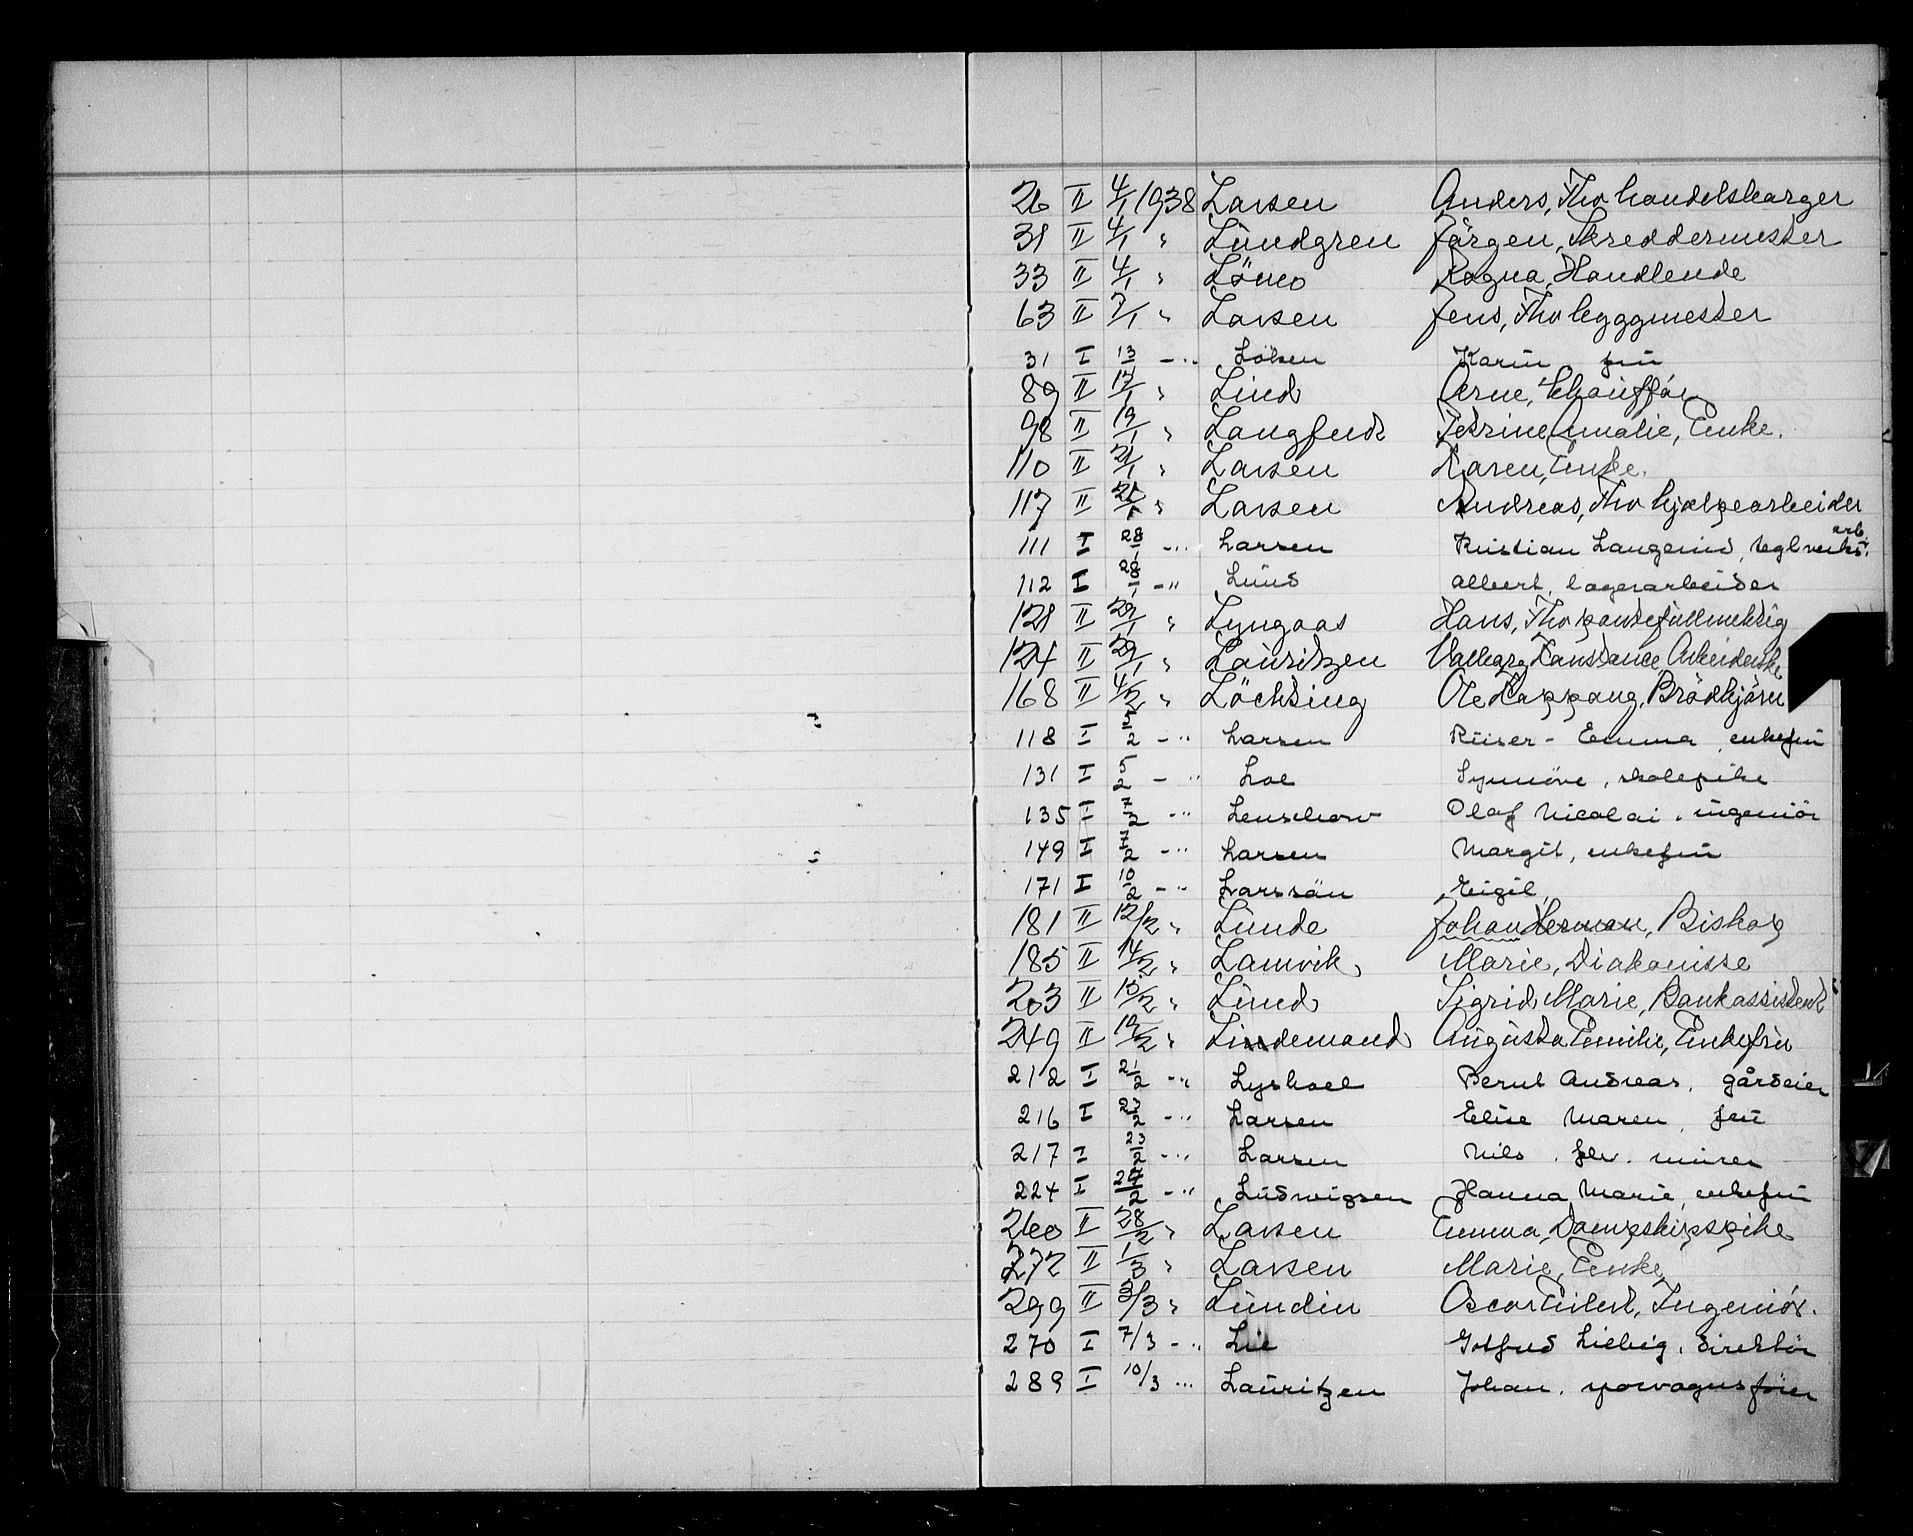 26 II 4/1 1938 Larsen Anders, Thv handelsborger
31 II 4/1 " Lundgren Jörgen, Skreddermester
33 II 4/1 " Lömo Ragna, Handlende
63 II 7/1 " Larsen Jens, Thv byggmester
31 I 13/1 -"- Löken Karin fru
89 II 17/1 " Lind Arne, Chaufför
98 II 19/1 " Langfeldt Petrine Amalie, Enke.
110 II 21/1 " Larsen Karen, Enke.
117 II 25/1 " Larsen Andreas, Thv hjælpearbeider
111 I 28/1 -"- Larsen Kristian Langerud, teglverksarb.
112 I 28/1 -"- Lund Albert, lagerarbeider
121 II 29/1 " Lyngaas Hans, Thv pantefullmektig
124 II 29/1 " Lauritzen Valborg Konstance, Arbeiderske
168 II 4/2 " Löchting Ole Kappang, Brödkjörer
118 I 5/2 -"- Larsen Ruser- Emma, enkefru
131 I 5/2 -"- Loe Synnöve, skolepike
135 I 7/2 -"- Lenschow Olaf Nicolai, ingeniör
149 I 7/2 -"- Larsen Margit, enkefru
171 I 10/2 -"- Larssön Eigil,
181 II 12/2 " Lunde Johan Herman, Biskop
185 II 14/2 " Lamvik, Marie, Diakonisse
203 II 15/2 " Lund Sigrid Marie, Bankassistent
249 II 19/2 " Lindemand Augusta Emilie, Enkefru
212 I 21/2 -"- Lyshoel Bernt Andreas, gårdeier
216 I 23/2 -"- Larsen Elise Maren, fru
217 I 23/2 -"- Larsen Nils, fhv. murer
224 I 24/2 -"- Ludwigsen Hanna Marie, enkefru
260 II 28/2 " Larsen Emma, Dampskipspike
272 II 1/3 " Larsen Marie, Enke
299 II 3/3 " Lundin Oscar Eilert, Ingeniör.
270 I 7/3 -"- Lie Gotfred Liebig, direktör
289 I 10/3 -"- Lauritzen Johan, sporvognsförer